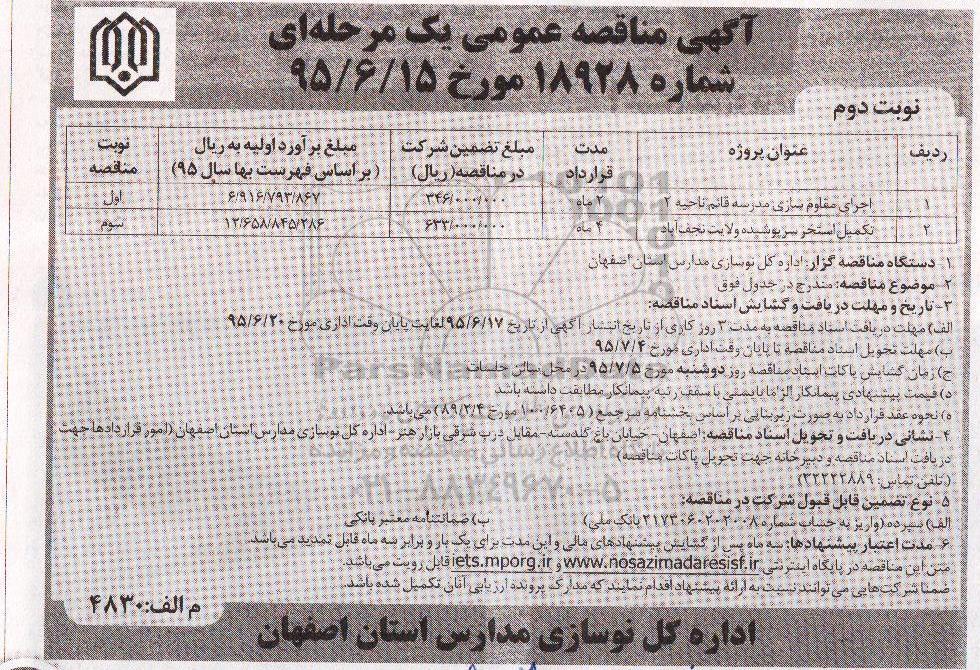 آگهی مناقصه عمومی یک مرحله‌ای
شماره ۱۸۹۲۸ مورخ ۹۵/۶/۱۵
نوبت دوم
ردیف	عنوان پروژه	مدت قرارداد	مبلغ تضمین شرکت در مناقصه( ریال)	مبلغ برآورد اولیه به ریال ( بر اساس فهرست بها سال ۹۵)	نوبت مناقصه
۱	اجرای مقاوم سازی مدرسه قائم ناحیه ۲	۲ ماه	۳۴۶/۰۰۰/۰۰۰	۶/۹۱۶/۷۹۳/۸۶۷	اول
۲	تکمیل استخر سرپوشیده ولایت نجف آباد	۴ ماه	۶۳۳/۰۰۰/۰۰۰	۱۲/۶۵۸/۸۴۵/۲۸۶	سوم
۱- دستگاه مناقصه گزار: اداره کل نوسازی مدارس استان اصفهان
۲- موضوع مناقصه: مندرج در جدول فوق
۳- تاریخ و مهلت دریافت و گشایش اسناد مناقصه:
الف) مهلت دریافت اسناد مناقصه به مدت ۳ روز کاری از تاریخ انتشار آگهی از تاریخ ۹۵/۶/۱۷ لغایت پایان وقت اداری مورخ ۹۵/۶/۲۰
ب) مهلت تحویل اسناد مناقصه تا پایان وقت اداری مورخ ۹۵/۷/۴
ج) زمان گشایش پاکات اسناد مناقصه روز دوشنبه مورخ ۹۵/۷/۵ در محل سالن جلسات
د) قیمت پیشنهادی پیمانکار الزاما بایستی با سقف رتبه پیمانکار مطابقت داشته باشد
ه) نحوه عقد قرارداد به صورت زیربنایی بر اساس بخشنامه سرجمع ( ۱۰۰/۶۴۰۵ مورخ ۸۹/۲/۴ ) می‌باشد.
۴- نشانی دریافت و تحویل اسناد مناقصه: اصفهان- خیابان باغ گلدسته- مقابل درب شرقی بازار هنر- اداره کل نوسازی مدارس استان اصفهان (امور قراردادها جهت
دریافت اسناد مناقصه و دبیرخانه جهت تحویل پاکات مناقصه)
(تلفن تماس: ۳۲۲۲۲۸۸۹)
۵- نوع تضمین قابل قبول شرکت در مناقصه:
الف) سپرده (واریز به حساب شماره ۲۱۷۳۰۶۰۲۰۲۰۰۸ بانک ملی)	ب) ضمانتنامه معتبر بانکی
۶- مدت اعتبار پیشنهادها: سه ماه پس از گشایش پیشنهادهای مالی و این مدت برای یک بار و برابر سه ماه قابل تمدید می‌باشد.
متن این مناقصه در پایگاه اینترنتی www.nosazimadaresisf.ir و iets.mporg.ir قابل رویت می‌باشد.
ضمنا شرکت‌هایی می توانند نسبت به ارائه پیشنهاد اقدام نمایند که مدارک پرونده ارزیابی آنان تکمیل شده باشد.
م الف: ۴۸۳۰
اداره کل نوسازی مدارس استان اصفهان
۰۲۱-۸۸۳۴۹۶۷۰-۵